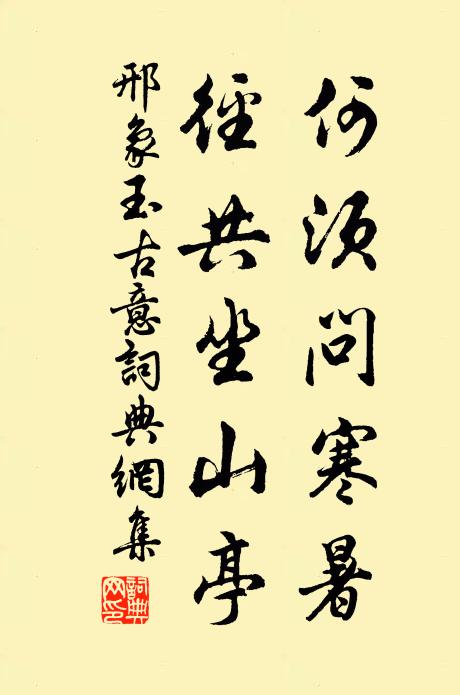 何須問寒暑
徑共坐山亭
邢象玉古意詞典網集
詞典網印